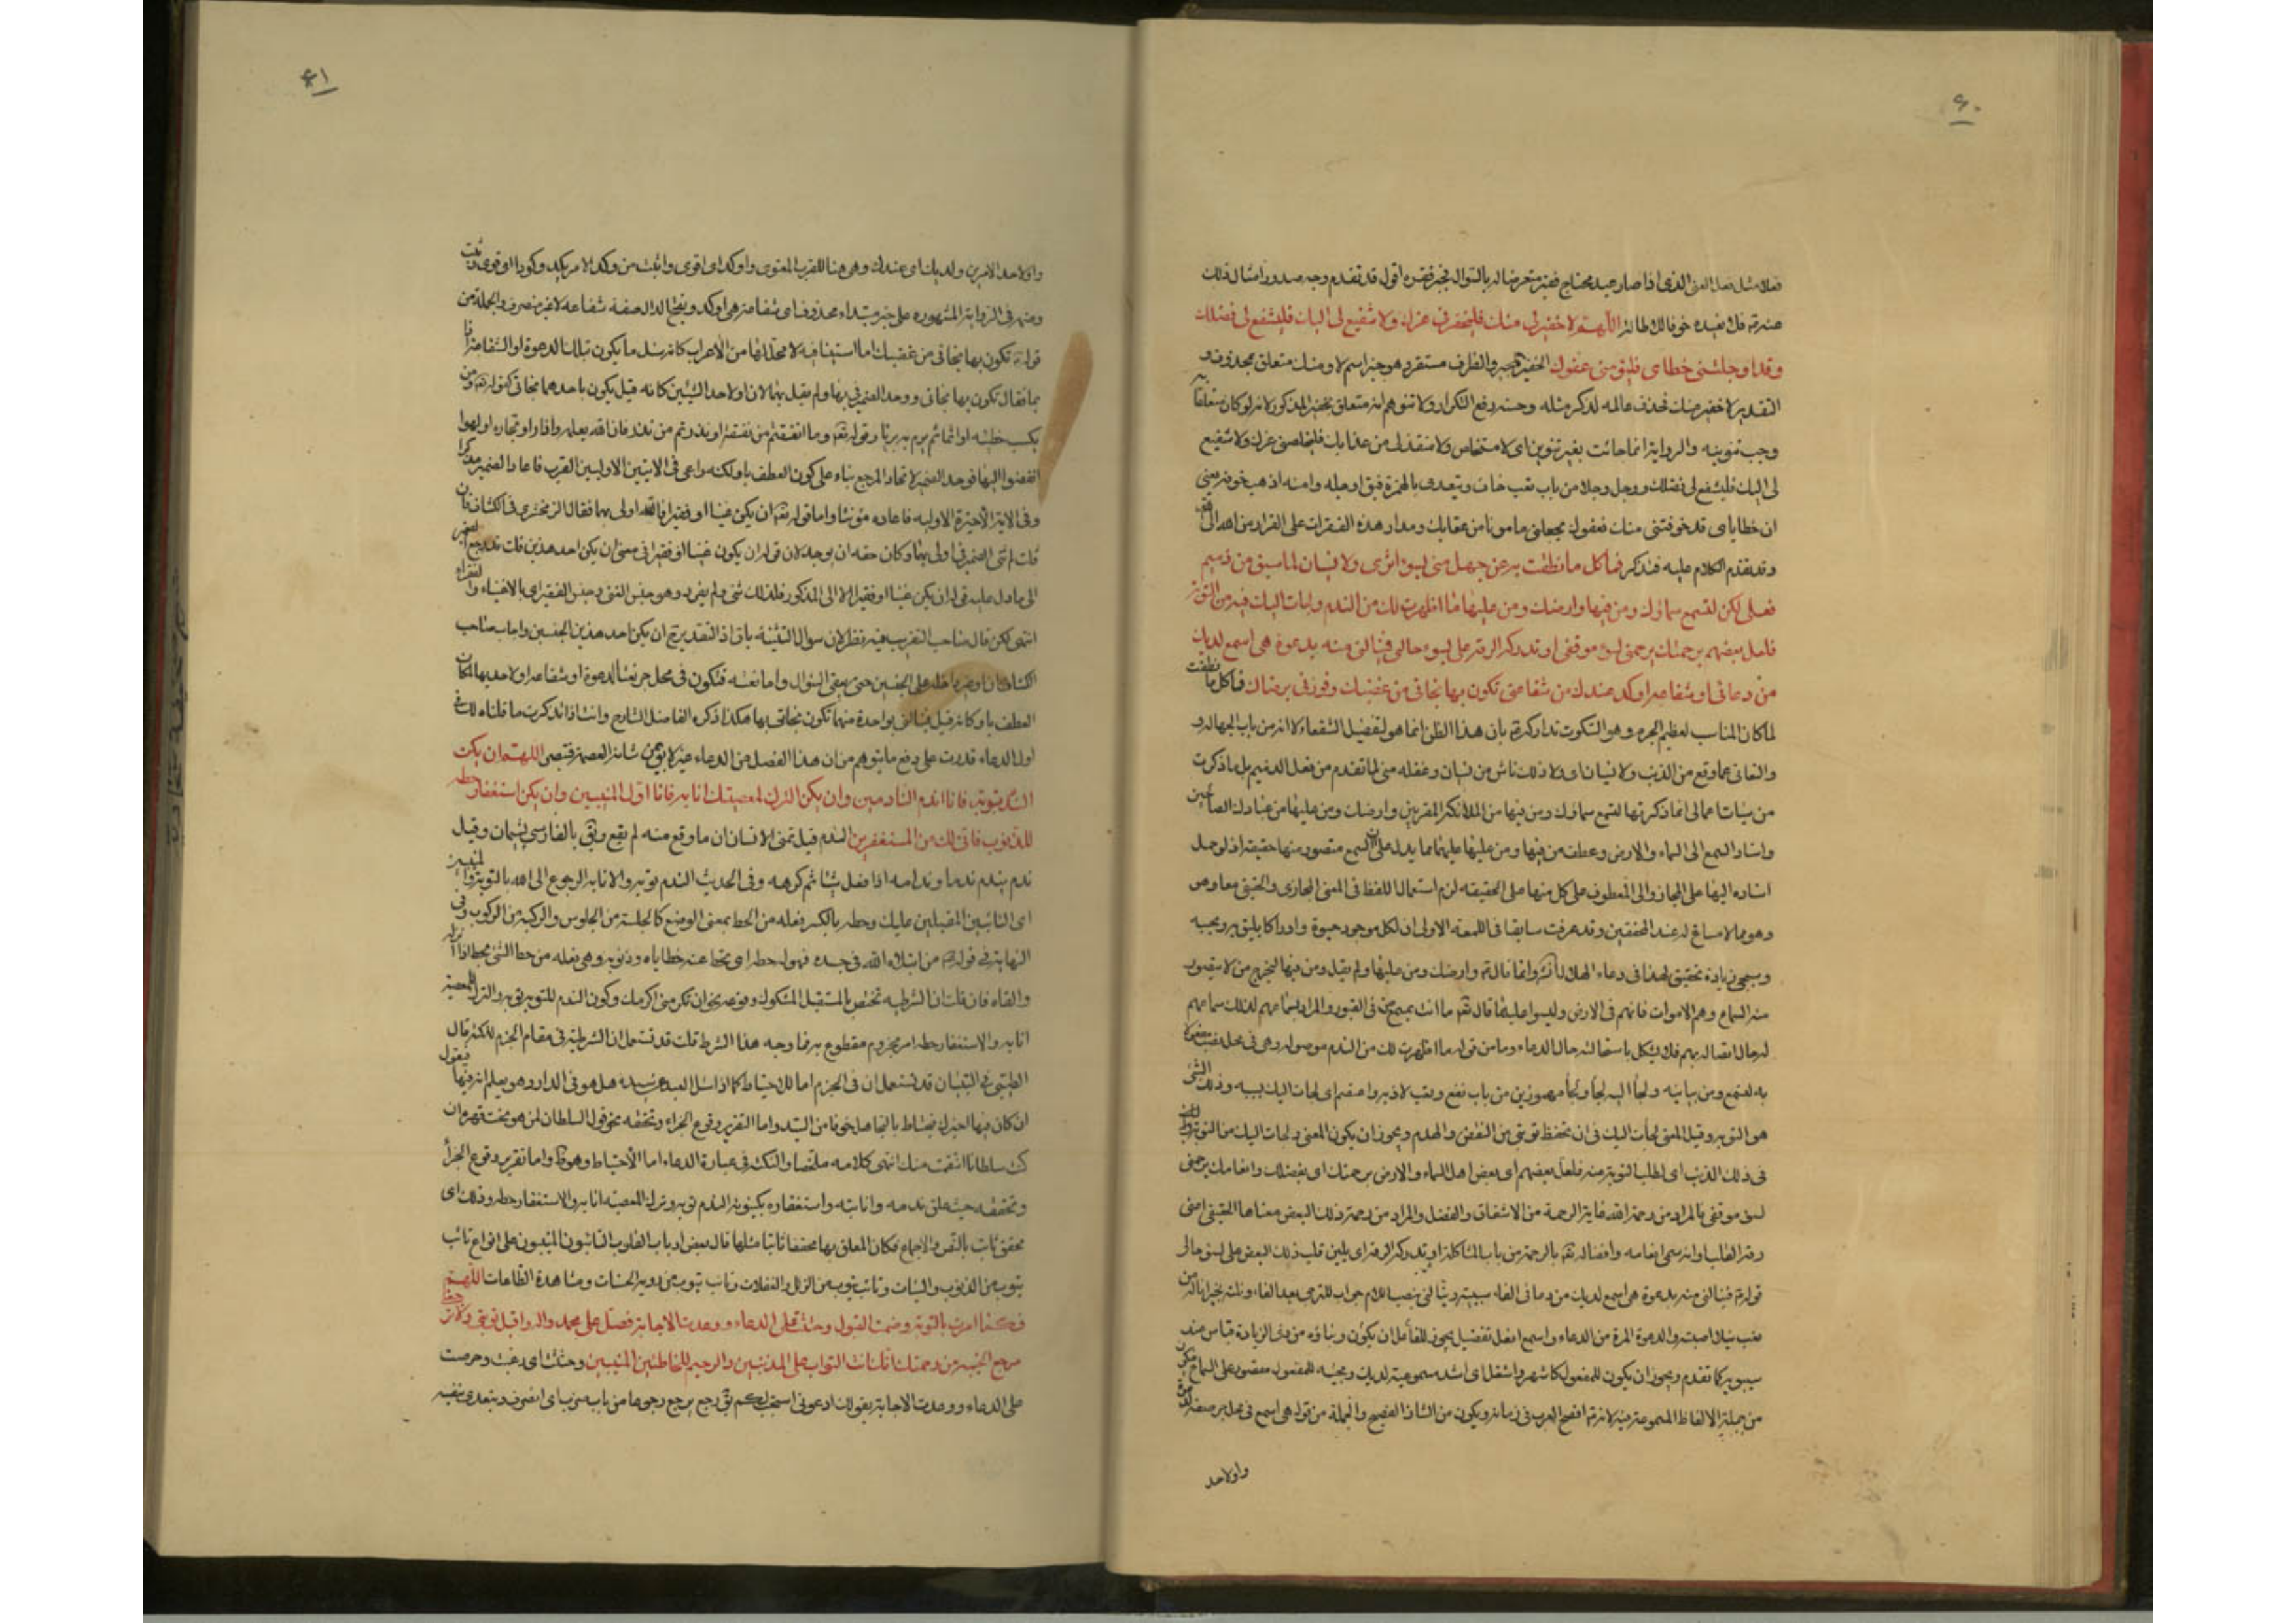 ۶۰
فعلاً مثل فعل الغنى الذى اذا صار عبد محتاج فقير متعرضا له بالسؤال يجبر فقره اقول قد تقدم وجه صدور امثال ذلك
عنه فلا نعيده خوفا للاطالة اللهم لا خفير لى منك فليخفرنى عزك ولا شفيع لى اليك فليشفع لى فضلك
وقد اوجلتنى خطاياى فليؤمنى عفوك الخفير المجير والظرف مستقر وهو خبر اسم لا ومنك متعلق بمحذوف و
التقدير لا خفير منك فحذف عامله لذكر مثله وحسنه دفع التكرار ولا تتوهم انه متعلق بخفير المذكور لانه لو كان متعلقا به
وجب تنوينه والرواية انما جائت بغير تنوين اى لا مستخلص ولا منقذ لى من عذابك فليخلصنى عزك ولا شفيع
لى اليك فليشفع لى فضلك ووجل وجلا من باب تعب خاف ويتعدى بالهمزة فيق اوجله وامنه اذهب خوفه يعنى
ان خطاياى قد خوفتنى منك فعفوك يجعلنى مامونا من عقابك ومدار هذه الفقرات على الفرار من الله الى الله
وقد تقدم الكلام عليه فتذكر فما كل ما نطقت به عن جهل منى بسوء اثرى ولا نسيان لما سبق من ذميم
فعلى لكن لتسمع سماؤك ومن فيها وارضك ومن عليها ما اظهرت لك من الندم ولجات اليك فيه من التوبة
فلعل بعضهم برحمتك يرحمنى لسوء موقفى او تدركه الرقة على لسوء حالى فينالنى منه بدعوة هى اسمع لديك
من دعائى او شفاعة اوكد عندك من شفاعتى تكون بها نجاتى من غضبك وفوزتى برضاك فما كل ما نطقت
لما كان المناسب لعظيم الجرم وهو السكوت تداركه بان هذا النطق انما هو لتفضيل الشفعاء لا انه من باب الجهالة و
والتعافى عما وقع من الذنب ولا نسيان اى ولا ذلك ناش من نسيان وغفلة منى لما تقدم من فعل الذميم بل ما ذكرت
من سيئات اعمالى انما ذكرتها لتسمع سماؤك ومن فيها من الملائكة المقربين وارضك ومن عليها من عبادك الصالحين
واسناد السمع الى السماء والارض وعطف من فيها ومن عليها عليهما مما يدل على ان السمع متصور منها حقيقة اذ لو حمل
اسناده اليها على المجاز والى المعطوف على كل منها على الحقيقه لزم استعمال اللفظ فى المعنى المجازى والحقيقى معا وهو
وهو مما لا مساغ له عند المحققين وقد عرفت سابقا فى اللمعة الاولى ان لكل موجود حيوة وادراكا يليق به ويجيه
ويجئ زيادة تحقيق لهذا فى دعاء الهلال وانما قال وارضك ومن عليها ولم يقل ومن فيها ليخرج من لا يتصور
منه السماع وهم الاموات فانهم فى الارض وليسوا عليها قال تعه ما انت بمسمع من فى القبور والمراد بسماعهم لذلك سماعهم
له حال اتصاله بهم فلا يشكل باستحالته حال الدعاء وما من قوله ما اظهرت لك من الندم موصولة وهى فى محل نصب مفعول
به لتسمع ومن بيانيه ولجأ اليه لجأ وملجأ مهموزين من باب نفع وتعب لاذ به واعتصم اى لجات اليك بسببه وذلك الشئ
هو التوبة وقيل المعنى لجأت اليك فى ان تحفظ توبتى من النقض والهدم ويجوز ان يكون المعنى ولجات اليك من التوبة
فى ذلك الذنب اى لطلب التوبة منه فلعل بعضهم اى بعض اهل السماء والارض برحمتك اى بفضلك وانعامك يرحمنى
لسوء موقفى فالمراد من رحمة الله غاية الرحمة من الاشفاق والفضل والمراد من رحمة ذلك البعض معناها الحقيقى اعنى
رقة القلب وانه سمى انعامه وافضاله تعه بالرحمة من باب المشاكلة او تدركه الرقة اى يلين قلب ذلك البعض على لسوء حالى
قوله فينالنى منه بدعوة هى اسمع لديك من دعائى الفاء سببية وينالنى بنصب اللام جواب للترجى بعد الفاء ونلته بخير اناله من
تعب نيلا اصبته والدعوة المرة من الدعاء واسمع افعل تفضيل يجوز للفاعل ان يكون وبناؤه من ذى الزيادة قياس عند
سيبويه كما تقدم ويجوز ان يكون للمفعول كاشهر واشغل اى اشد مسموعية لديك ومجيئه للمفعول مقصور على السماع
من جملة الالفاظ المسموعة منه لانه افصح العرب فى زمانه ويكون من الشاذ الفصيح والجملة من قوله هى اسمع فى محل جر صفة لدعوة
واو لاحد
۶۱
واو لاحد الامرين ولديك اى عندك وهى هنا للقرب المعنوى واوكد اى اقوى واثبت من وكد الامر يكد وكودا اى قوى وثبت
قوله تكون بها نجاتى من غضبك اما استينافيه لا محل لها من الاعراب كانه سئل ما يكون بتلك الدعوة او الشفاعة
بها فقال تكون بها نجاتى ووحد الضمير فى بها ولم يقل بهما لان او لاحد الشيئين كانه قيل يكون باحدهما نجاتى كقوله تعه ومن
يكسب خطيئه او اثما ثم يرم به بريئا وقوله تعه وما انفقتم من نفقة او نذرتم من نذر فان الله يعلمه واذا راو تجاره او لهوا
انفضوا اليها فوحد الضمير لاتحاد المرجع بناء على كون العطف باو لكنه راعى فى الايتين الاوليين القرب فاعاد الضمير مذكرا
وفى الاية الاخيرة الاوليه فاعاده مؤنثا واما قوله تعه ان يكن غنيا او فقيرا فالله اولى بهما فقال الزمخشرى فى الكشاف فان
قلت لم ثنى الضمير فى اولى بهما وكان حقه ان يوحد لان قوله ان يكون غنيا او فقيرا فى معنى ان يكن احد هذين قلت قد رجع الضمير
الى ما دل عليه قوله ان يكن غنيا او فقيرا لا الى المذكور فلذلك ثنى ولم يفرد وهو جنس الغنى وجنس الفقير اى بالاغنياء والفقراء
انتهى لكن قال صاحب التقريب فيه نظر لان سؤال التثنية باق اذ التقدير ح ان يكن احد هذين الجنسين واجاب صاحب
العطف باو كانه قيل فينالنى بواحدة منهما تكون نجاتى بها هكذا ذكره الفاضل الشارح وانت اذا تذكرت ما قلناه لك فى
اول الدعاء قدرت على دفع ما يتوهم من ان هذا الفصل من الدعاء عنه لا يؤمن شانه العصمة فتبصر اللهم ان يكن
الندم توبة فانا اندم النادمين وان يكن الترك لمعصيتك انابة فانا اول المنيبين وان يكن استغفار حطة
للذنوب فانى لك من المستغفرين الندم قيل تمنى الانسان ان ما وقع منه لم يقع ويق بالفارسى پشيمان وقيل
ندم يندم ندما وندامه اذا فعل شيئا ثم كرهه وفى الحديث الندم توبه والانابه الرجوع الى الله بالتوبة واول المنيبين
اى التائبين المقبلين عليك وحطه بالكسر فعله من الحط بمعنى الوضع كالجلسة من الجلوس والركبة من الركوب وفى
النهاية فى قوله من ابتلاه الله فى جسده فهو له حطه اى تحط عنه خطاياه وذنوبه وهى فعله من حط الشئ يحطه اذا انزله
والقاه فان قلت ان الشرطيه تختص بالمستقبل المشكوك وقوعه نحو ان تكرمنى اكرمك وكون الندم للتوبة توبه والترك للمعصية
انابه والاستغفار حطه امر مجزوم مقطوع به فما وجه هذا الشرط قلت قد تستعمل ان الشرطية فى مقام الجزم لنكتة قال
الطيبى فى التبيان قد تستعمل ان فى الجزم اما للاحتياط كما اذا سئل العبد عن سيده هل هو فى الدار وهو يعلم انه فيها فيقول
ان كان فيها اخبرك فيحتاط بالتجاهل خوفا من السيد واما التقرير وقوع الجزاء وتحققه نحو قول السلطان لمن هو تحت قهره ان
كنت سلطانا انتقمت منك انتهى كلامه ملخصا والنكتة فى عبارة الدعاء اما الاحتياط وهو ظ واما تقرير وقوع الجزاء
وتحققه حيث علق ندمه وانابته واستغفاره بكينونة الندم توبه وترك المعصية انابه والاستغفار حطه وذلك اى
محقق ثابت بالنص والاجماع فكان المعلق بها محققا ثابتا مثلها قال بعض ارباب القلوب التائبون المنيبون على انواع تائب
يتوب من الذنوب والسيئات وتائب يتوب من الزلل والغفلات وتائب يتوب من روية الحسنات ومشاهدة الطاعات اللهم
فكما امرت بالتوبة وضمنت القبول وحثثت على الدعاء ووعدت الاجابة فصل على محمد واله واقبل توبتى ولا ترجعنى
مرجع الخيبة من رحمتك انك انت التواب على المذنبين والرحيم للخاطئين المنيبين وحثثت اى رغبت وحرصت
على الدعاء ووعدت الاجابة بقولك ادعونى استجب لكم يق رجع يرجع رجوعا من باب ضرب اى انصرف ويتعدى بنفسه